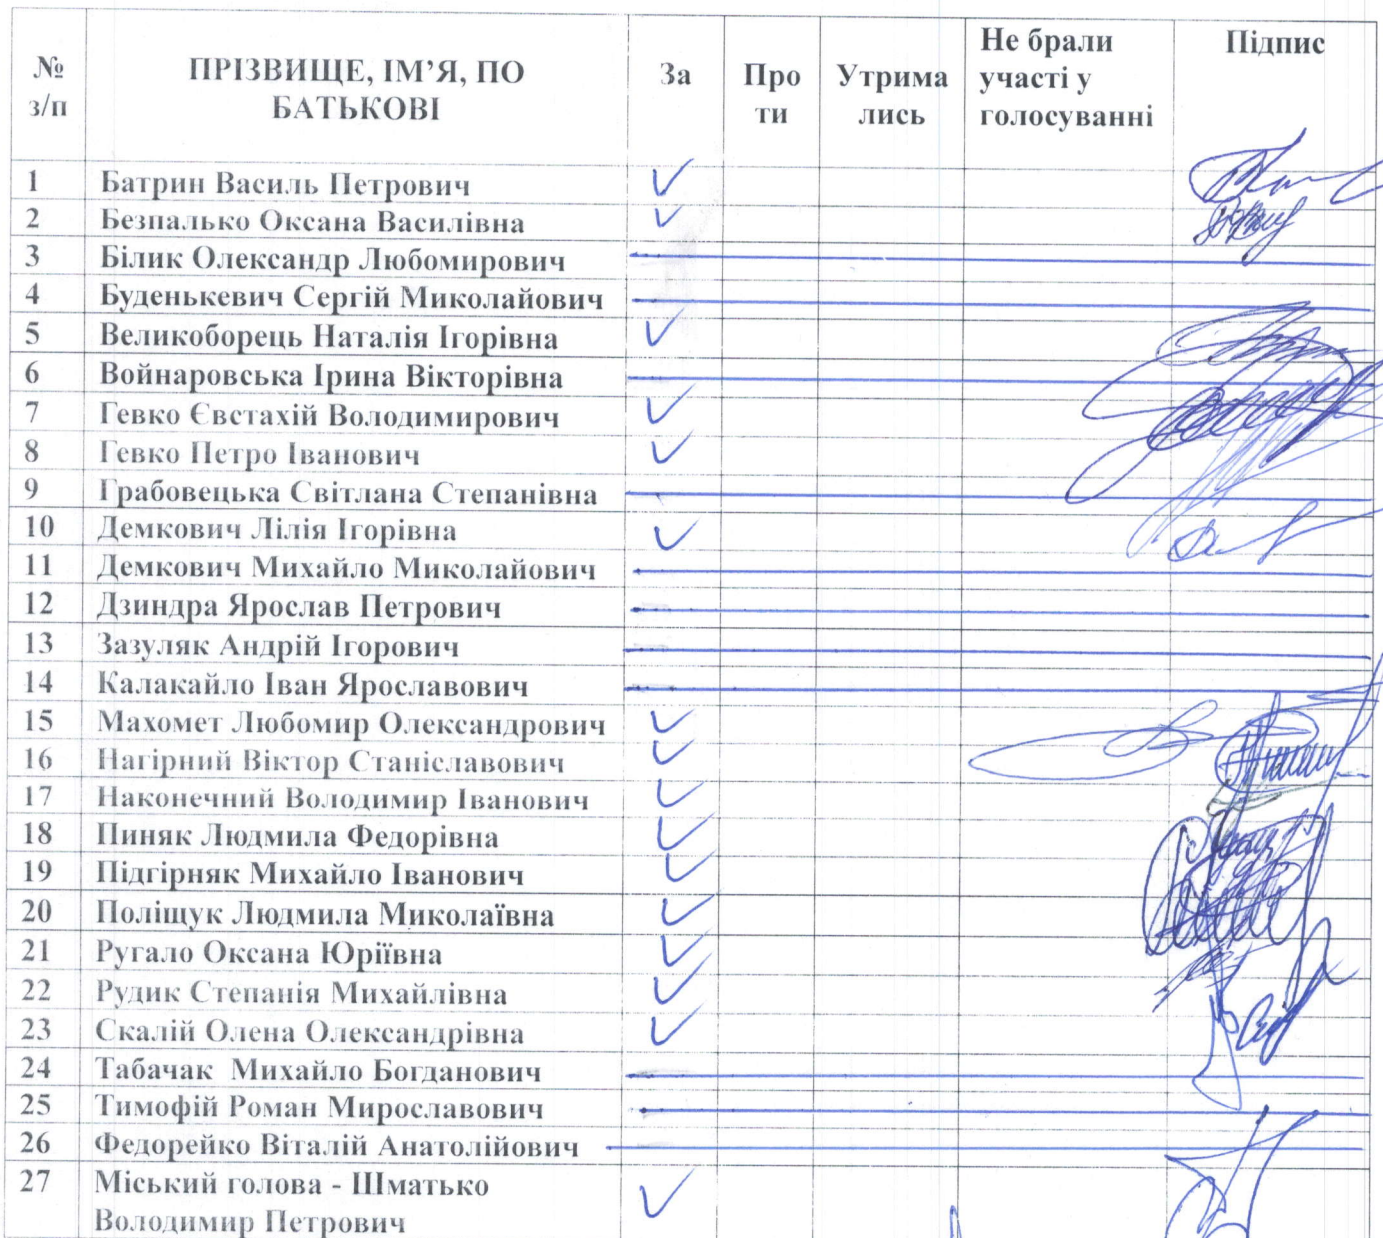 № з/п
ПРІЗВИЩЕ, ІМ’Я, ПО БАТЬКОВІ
За
Про
ти
Утрима
лись
Не брали
участі у
голосуванні
Підпис
1 Батрин Василь Петрович
2 Безпалько Оксана Василівна
3 Білик Олександр Любомирович
4 Буденькевич Сергій Миколайович
5 Великоборець Наталія Ігорівна
6 Войнаровська Ірина Вікторівна
7 Гевко Євстахій Володимирович
8 Гевко Петро Іванович
9 Грабовецька Світлана Степанівна
10 Демкович Лілія Ігорівна
11 Демкович Михайло Миколайович
12 Дзиндра Ярослав Петрович
13 Зазуляк Андрій Ігорович
14 Калакайло Іван Ярославович
15 Махомет Любомир Олександрович
16 Нагірний Віктор Станіславович
17 Наконечний Володимир Іванович
18 Пиняк Людмила Федорівна
19 Підгірняк Михайло Іванович
20 Поліщук Людмила Миколаївна
21 Ругало Оксана Юріївна
22 Рудик Степанія Михайлівна
23 Скалій Олена Олександрівна
24 Табачак Михайло Богданович
25 Тимофій Роман Мирославович
26 Федорейко Віталій Анатолійович
27 Міський голова - Шматько
Володимир Петрович